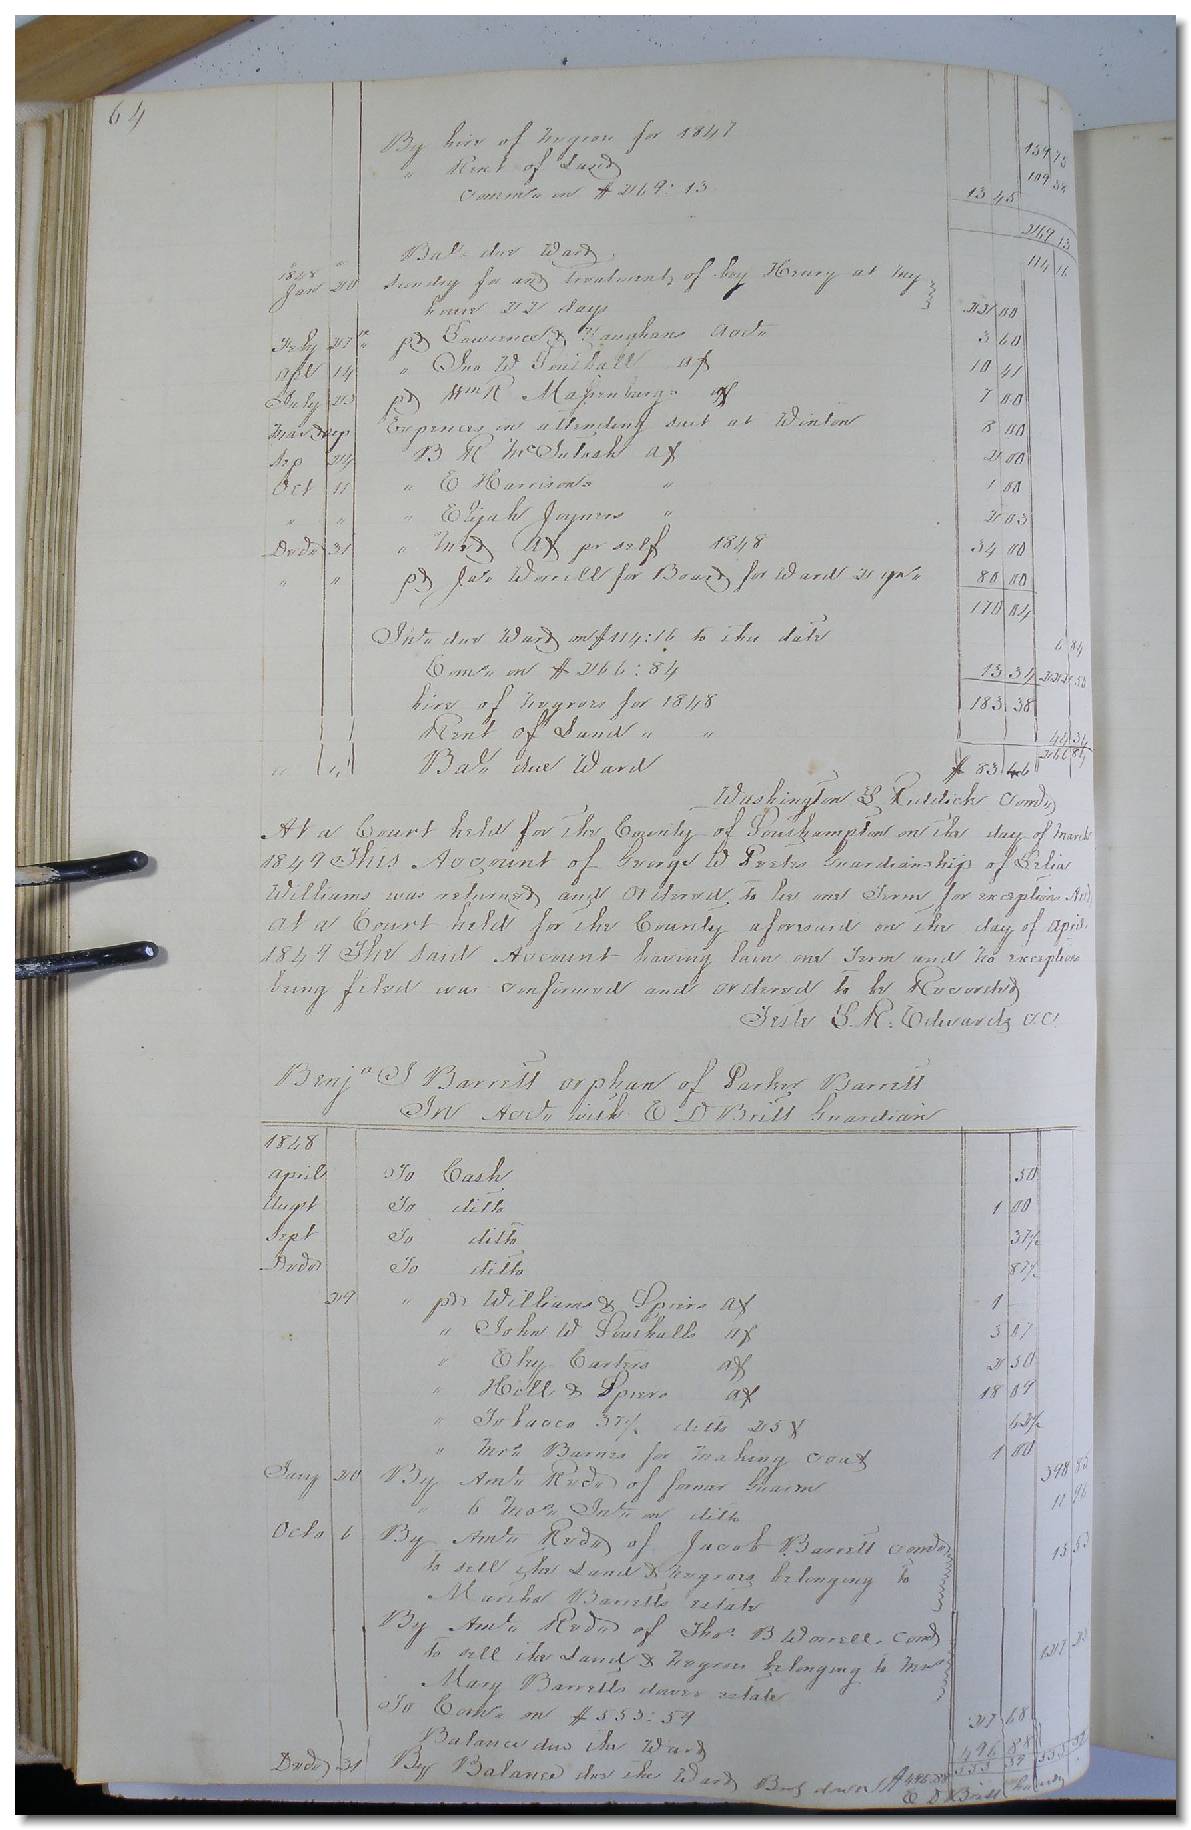 64
By hire of Negroes for 1847 159 75
" Rent of Land 109 38
Comms on $269:13 13 45
269 13
" " Bal. due Ward 114 16
1848
Jan 20 Sundry for and treatment of boy Henry at my
house 22 days 22 00
Feby 27 " pd Lawrence & Vaughans Accts 3 60
Apl 14 " Jno W Southall a/c 10 41
July 23 pd Wm R Massenburgs a/c 7 00
Mar & Sep Expences in attending suit at Winton 8 00
Sep 24 B R McIntosh a/c 2 00
Oct 11 " E Harrisons " 1 00
" " " Elijah Joyners " 2 03
Decr 31 " Mrd a/c pr self 1848 34 00
" " pd Jas Worrell for Board for Ward 2 yrs 80 00
170 04
Int. due Ward on $114:16 to this date 6 84
Coms on $266:84 13 34 222 50
hire of Negroes for 1848 183 38
Rent of Land " " 44 34
266 84
" " Bal. due Ward $83 46
Washington S Riddick Comr
At a Court held for the County of Southampton on the day of March
1849 This Account of George W Peete Guardianship of Celia
Williams was returned and Ordered to lie one Term for exceptions And
at a Court held for the County aforesaid on the day of April
1849 The said Account having lain one Term and no exceptions
being filed was confirmed and ordered to be Recorded
Teste L. R. Edwards C.C.
Benja J Barrett orphan of Parker Barrett
In Acct. with E D Britt Guardian
1848
April To Cash 50
Augt To ditto 1 00
Sept To ditto 37½
Decr To ditto 87½
29 " pd Williams & Spiers a/c 1
" John W Southalls a/c 3 07
" Ely Carters a/c 2 50
" Holl & Spiers a/c 18 09
" Tobacco 37½ ditto 25 ¢ 62½
" Mrs Barnes for making coat 1 00
Jany 20 By Amt. Recd. of former Guardn 398 85
" 6 Mos. Int. on ditto 11 96
Octo 6 By Amt. Recd of Jacob Barrett comr
to sell the Land & Negroes belonging to
Martha Barretts estate 15 53
By Amt. Recd of Thos. B Worrell Comr
to sell the Land & Negroes belonging to Mrs
Mary Barretts dower estate 127 23
To Coms. on $553:59 27 68
Balance due the Ward 496 88
553 57 553 57
Decr 31 By Balance due the Ward Brot down $496.88
E D Britt Guardn